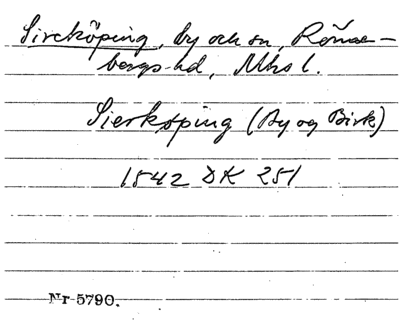 Sireköping, by och sn, Rönne-
bergs hd, Mhs l.
Sierköping (By og Birk)
1542 DK 251
Nr 5790.